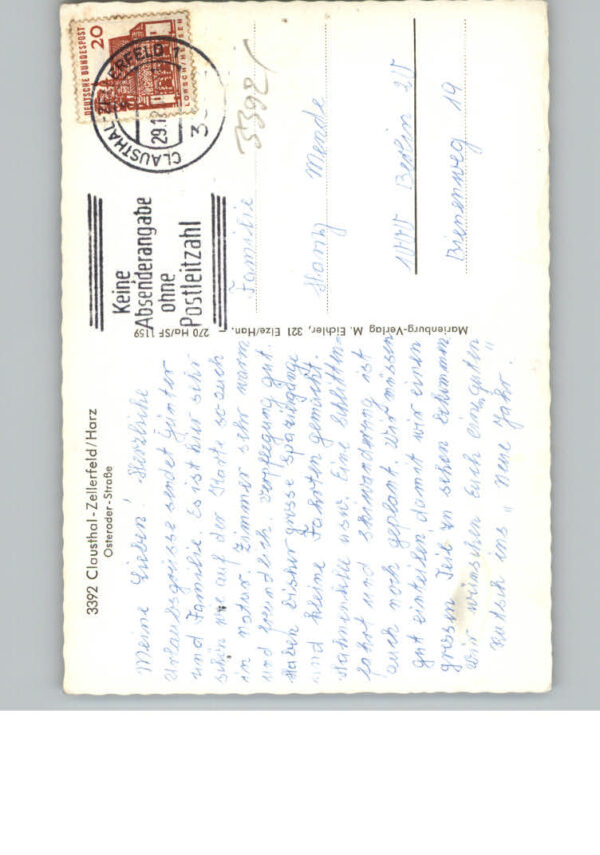 3392 Clausthal-Zellerfeld/Harz
Osteroder-Straße
Meine Lieben! Herzliche
Urlaubsgrüsse sendet Günter
und Familie. Es ist hier sehr
schön wie auf der Karte so auch
in natur. Zimmer sehr warm
und freundlich. Verpflegung gut.
Haben bisher grosse Spaziergänge
und kleine Fahrten gemacht.
Hahnenklee usw. Eine Schlitten-
fahrt und Skiwanderung ist
auch noch geplant. Wir müssen
gut einteilen, damit wir einen
grossen Teil zu sehen bekommen
Wir wünschen Euch einen "guten
Rutsch ins" Neue Jahr.
270 Ha/SF 1159
Marienburg-Verlag M. Eichler, 321 Elze/Han.
Keine
Absenderangabe
ohne
Postleitzahl
CLAUSTHAL-ZELLERFELD 1
29.12
DEUTSCHE BUNDESPOST
20
LORSCH/HESSEN
3392
Familie
Mende
Berlin
Bienenweg 19